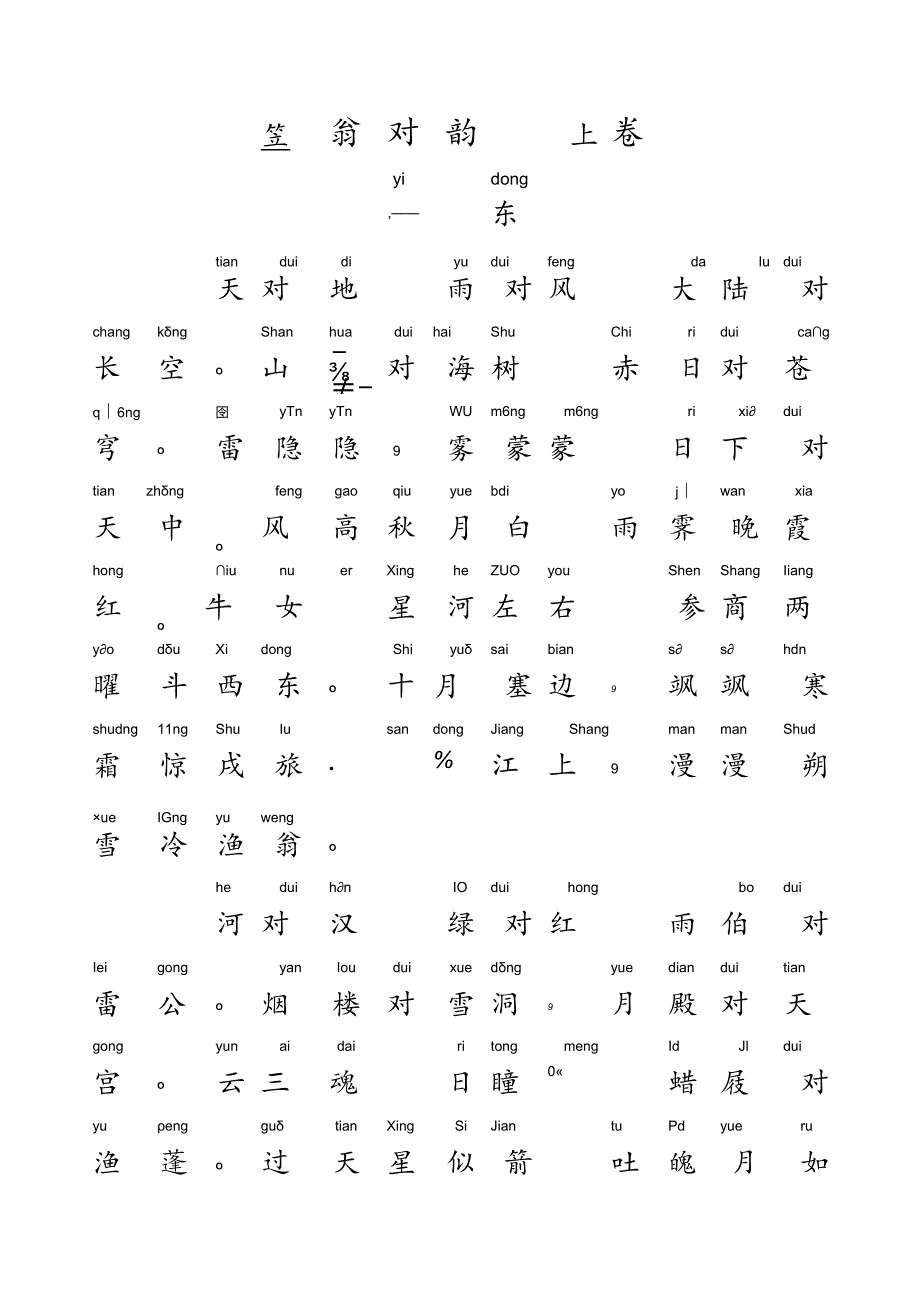 笠 翁 对 韵 上 卷
yi dong
,—— 东
tian dui di yu dui feng da lu dui
天 对 地 雨 对 风 大 陆 对
chang kδng Shan hua dui hai Shu Chi ri dui ca∩g
长 空 。 山 ⅜ 对 海 树 赤 日 对 苍
q｜6ng 囹 yTn yTn WU m6ng m6ng ri xi∂ dui
穹 。 雷 隐 隐 9 雾 蒙 蒙 日 下 对
tian zhδng feng gao qiu yue bdi yo j｜ wan xia
天 中 。 风 高 秋 月 白 雨 霁 晚 霞
hong ∩iu nu er Xing he ZUO you Shen Shang Iiang
红 。 牛 女 星 河 左 右 参 商 两
y∂o dδu Xi dong Shi yuδ sai bian s∂ s∂ hdn
曜 斗 西 东 。 十 月 塞 边 9 飒 飒 寒
shudng 11ng Shu Iu san dong Jiang Shang man man Shud
霜 惊 戌 旅 . % 江 上 9 漫 漫 朔
×ue IGng yu weng
雪 冷 渔 翁 。
he dui h∂n IO dui hong bo dui
河 对 汉 绿 对 红 雨 伯 对
Iei gong yan lou dui xue dδng yue dian dui tian
雷 公 。 烟 楼 对 雪 洞 9 月 殿 对 天
gong yun ai dai ri tong meng Id JI dui
宫 。 云 三 魂 日 瞳 0« 蜡 屐 对
yu ρeng guδ tian Xing Si Jian tu Pd yue ru
渔 蓬 。 过 天 星 似 箭 吐 魄 月 如